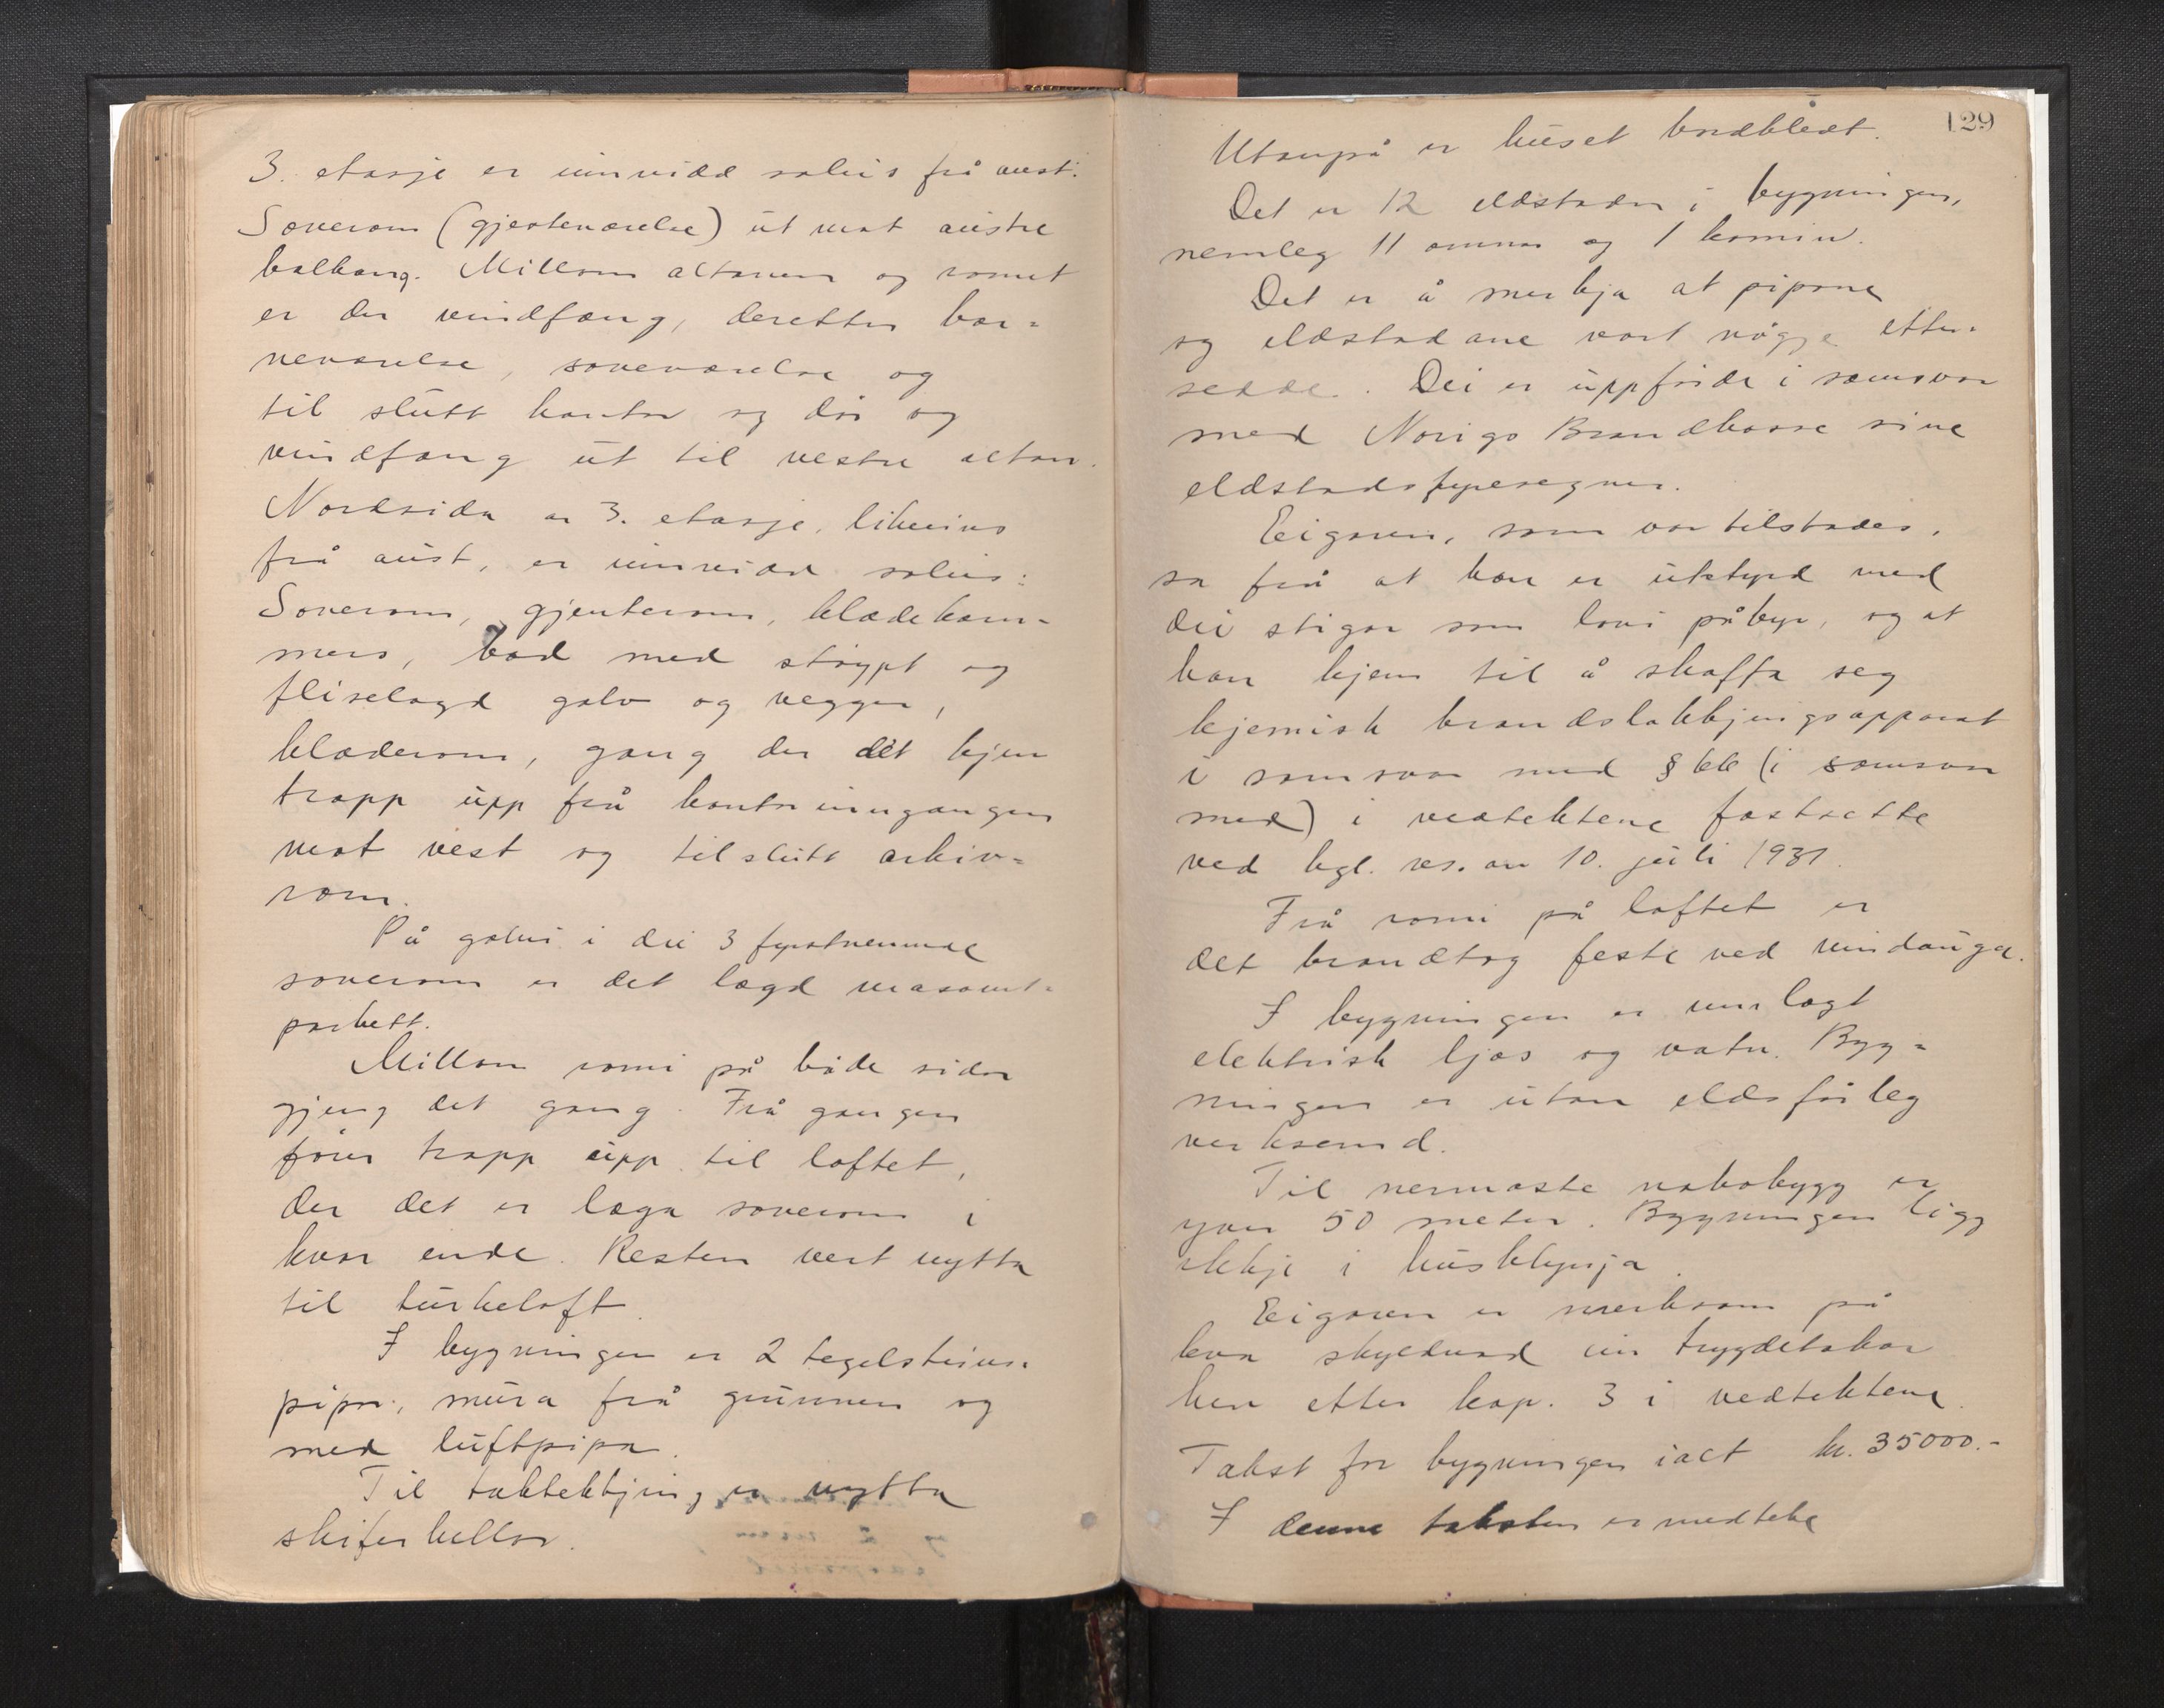 3. etasje er innreidd soleis frå aust:
Soverom (gjesteværelse) ut mot austre
balkong. Millom altanen og romet
er der vindfang, deretter bar=
neværelse, soveværelse og
til slutt kontor og dør og
vindfang ut til vestre altan.
Nordsida av 3. etasje, likeeins
frå aust, er innreidd soleis:
Soverom, gjenterom, klædekam-
mers, bad med støypt og
fliselagd golv og vegger,
klæderom, gang der det kjem
trapp upp frå kontorinngangen
mot vest og til slutt arkiv=
rom.
På golvi i dei 3 fyrstnemnde
soverom er det lagd masonit-
parkett.
Millom romi på både sidor
gjeng det gang. Frå gangen
fører trapp upp til loftet,
der det er laga soverom i
kvar ende. Resten vert nytta
til turkeloft.
I bygningen er 2 tegelsteins-
pipor, mura frå grunnen og
med luftpipa.
Til taktekkjing er nytta
skiferhellor.
129
Utanpå er huset bordklædt.
Det er 12 eldstader i bygningen,
nemleg 11 omnar og 1 kamin.
Det er å merkja at pipone
og eldstadane vart nøgje etter-
sedde. Dei er uppførde i samsvar
med Norigs Brandkasse sine
eldstadsfyresegner.
Eigaren, som var tilstades,
sa frå at han er utstyrd med
dei stigar som lovi påbyr, og at
han kjem til å skaffa seg
kjemisk brandsløkkjingsapparat
i samsvar med § 66 (i samsvar
med) i vedtektene fastsette
ved kgl. res. av 10. juli 1931.
Frå romi på loftet er
det brandtog feste ved vindauga.
I bygningen er innlagt
elektrisk ljos og vatn. Byg=
ningen er utan eldsfårleg
verksemd.
Til nærmaste nabobygg er
yver 50 meter. Bygningen ligg
ikkje i husklyngja.
Eigaren er merksam på
kva skyldnad ein trygdetakar
hev etter kap. 3 i vedtektene.
Takst for bygningen ialt kr. 35000.-
I denne taksten er medteke